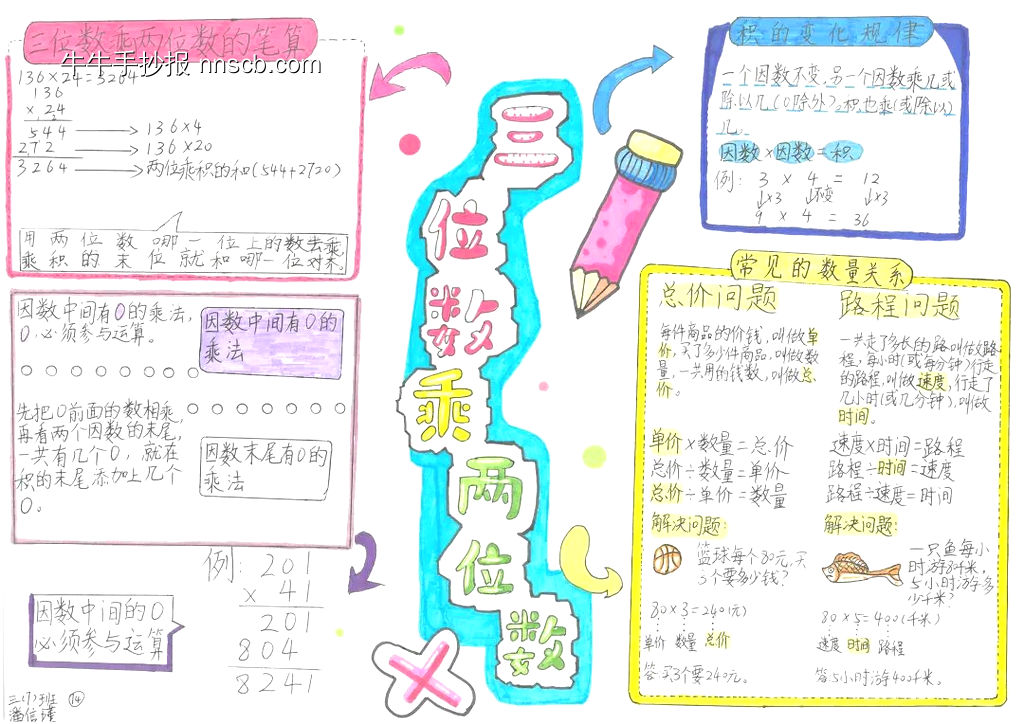 三位数乘两位数的笔算
牛牛手抄报 nnscb.com
136×24=3264
136
×24
544 → 136×4
272 → 136×20
3264 → 两位乘积的和(544+2720)
用两位数哪一位上的数去乘
乘积的末位就和哪一位对齐
因数中间有0的乘法,
0必须参与运算。
因数中间有0的
乘法
先把0前面的数相乘
再看两个因数的末尾,
一共有几个0,就在
积的末尾添加上几个
0。
因数末尾有0的
乘法
例: 201
× 41
201
804
8241
因数中间的0
必须参与运算
三(1)班 14
三位数乘两位数
积的变化规律
一个因数不变,另一个因数乘几或
除以几(0除外),积也乘(或除以)
几。
因数×因数=积
例: 3 × 4 = 12
↓×3 ↓不变 ↓×3
9 × 4 = 36
常见的数量关系
总价问题
每件商品的价钱,叫做单
价,买了多少件商品,叫做数
量,一共用的钱数,叫做总
价。
单价×数量=总价
总价÷数量=单价
总价÷单价=数量
解决问题:
篮球每个80元,买
3个要多少钱?
80×3=240(元)
单价 数量 总价
答:买3个要240元。
路程问题
一共走了多长的路叫做路
程,每小时(或每分钟)行走
的路程,叫做速度,行走了
几小时(或几分钟),叫做
时间。
速度×时间=路程
路程÷时间=速度
路程÷速度=时间
解决问题:
一只鱼每小
时游80千米,
5小时游多
少千米?
80×5=400(千米)
速度 时间 路程
答:5小时游400千米。